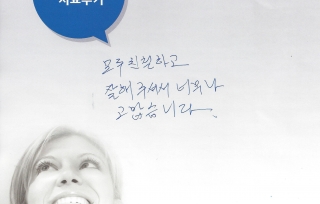 치료후기
모두 친절하고
잘해 주셔서 너무나
고맙습니다.